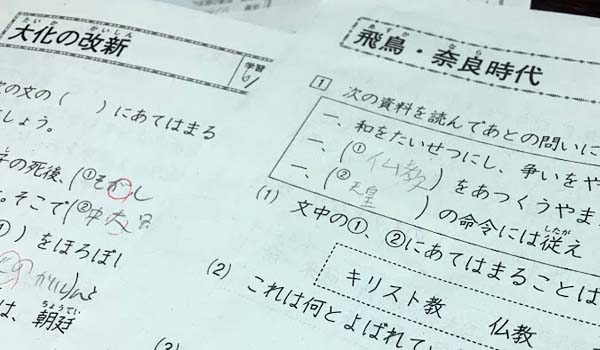 大化の改新
たいか かいしん
学習
次の文の( )にあてはまる
ましょう。
の死後、(①そがし
。そこで(②中大
①)をほろぼし
は、朝廷
ちょうてい
飛鳥・奈良時代
あすか なら
1 次の資料を読んであとの問いに
一、和をたいせつにし、争いをや
一、(①仏教)をあつくうやま
一、(②天皇)の命令には従え
したが
(1) 文中の①、②にあてはまることば
キリスト教 仏教
(2) これは何とよばれてい